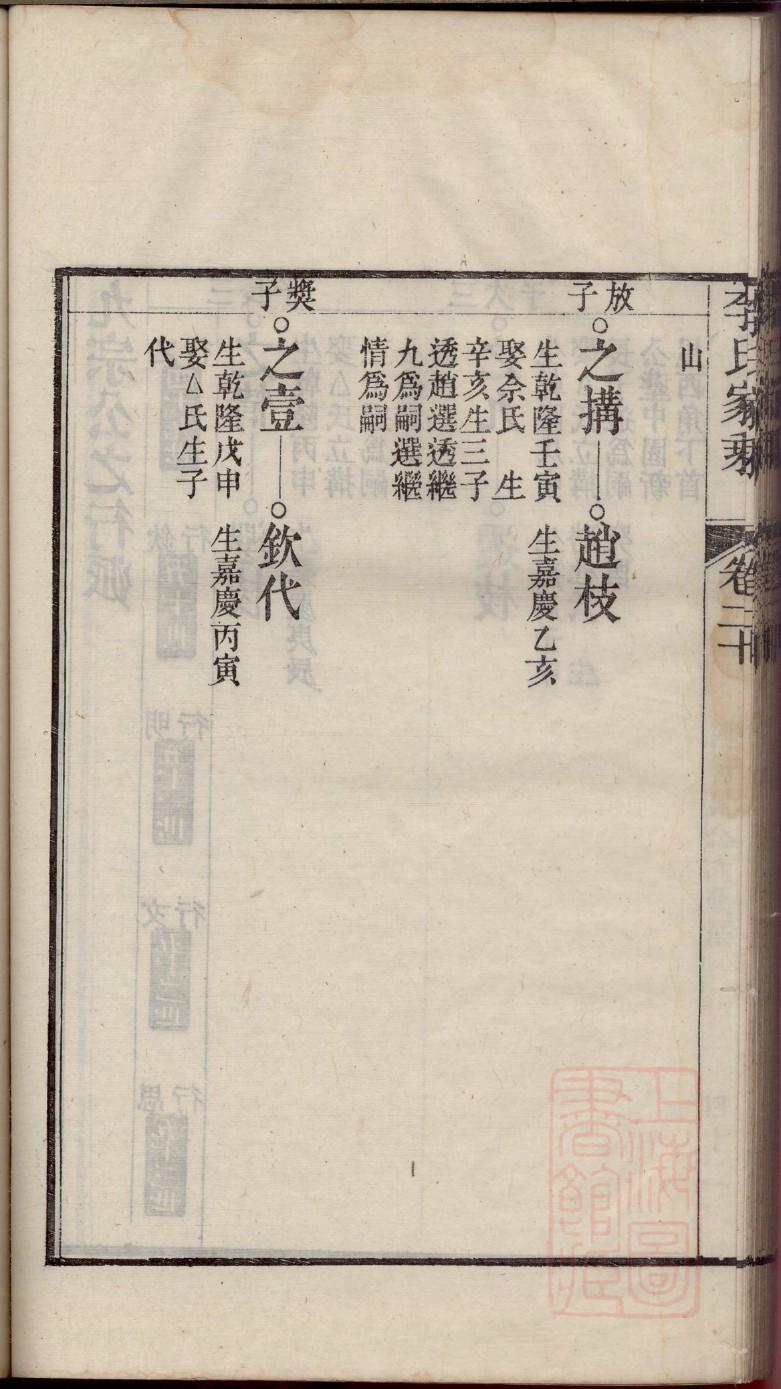 李氏家乘 卷二十
山
放子
之搆
生乾隆壬寅
娶佘氏 生
辛亥生三子
透趙選透繼
九爲嗣選繼
情爲嗣
趙枝
生嘉慶乙亥
獎子
之壹
生乾隆戊申
娶厶氏生子
代
欽代
生嘉慶丙寅
上海圖
書館藏